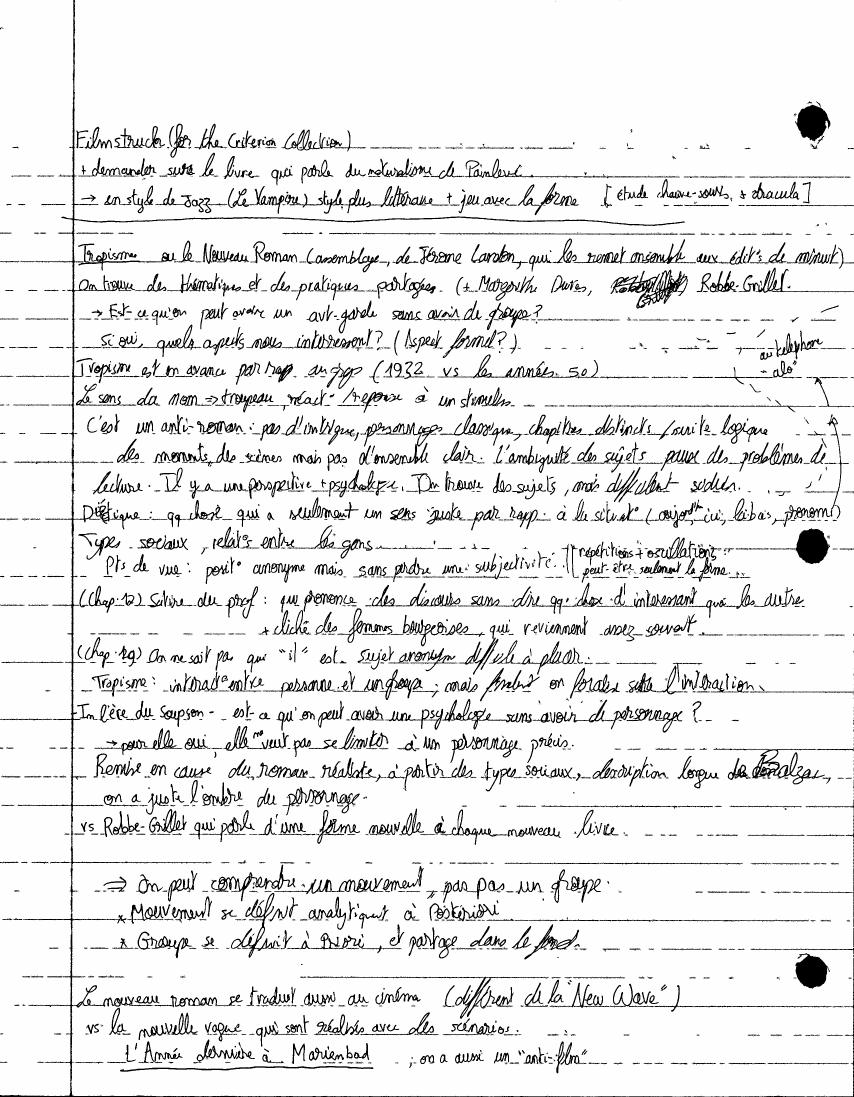 Filmstruck (for the Criterion Collection)
+ demander sure le livre qui parle du naturalisme de Painlevé
→ en style de Jazz (Le Vampire) style plus littéraire + jeu avec la forme [étude chauve-souris, + dracula]
Tropisme ou le Nouveau Roman (assemblage, de Jérôme Landon, qui les remet ensemble aux édit°s de minuit)
On trouve des thématiques et des pratiques partagées. (+ Margerithe Duras, Robbe-Grillet.
→ Est-ce qu'on peut avoire un avt-garde sans avoir de groupe?
si oui, quels aspects nous interressent? (Aspect formel?)
au telephone
- "alo"
Tropisme est en avance par rapp au grp (1932 vs les années 50)
Le sens du nom → troupeau, réact° / réponse à un stimulus
C'est un anti-roman: pas d'intrigue, personnages classique, chapitres distincts / suite logique
des moments, des scènes mais pas d'ensemble clair. l'ambiguité des sujets pause des problèmes de
lecture. Il y a une perspective + psychologie. On trouve des sujets, mais difficilent
Déictique: qq chose qui a seulement un sens juste par rapp. à la situat° (aujord'h ici, làbas, pronom)
Types sociaux, relat°s entre les gens
Pts de vue: posit° anonyme mais sans perdre une subjectivité. || répétitions + oscillations
peut-être seulement la forme...
(Chap. 12) Satire du prof: que prononce des discours sans dire qq. chose d'interessant que les autre
+ cliché des femmes bourgeoises, qui reviennent assez souvent.
(chap. 19) On ne sait pas qui "il" est. Sujet anonym difficile à placer.
Tropisme: interact° entre personne et un groupe; mais on focalise sur l'intéraction.
In l'ère du Soupson - est-ce qu'on peut avoir une psychologie sans avoir de personnage?
→ pour elle oui, elle ne veut pas se limiter à un personnage précis.
Remise en cause du roman réaliste, à partir des types sociaux, description longue de Balzac,
on a juste l'ombre du personnage.
vs Robbe-Grillet qui parle d'une forme nouvelle à chaque nouveau livre.
⇒ On peut comprendre un mouvement, pas pas un groupe.
* Mouvement se définit analytiquent à Posteriori
* Groupe se définit à Priori, et partage dans le fond.
Le nouveau roman se traduit aussi au cinéma (différent de la "New Wave")
vs la nouvelle vague qui sont réalisés avec des scénarios.
L'Année dernière à Marienbad ; on a aussi un "anti-film"